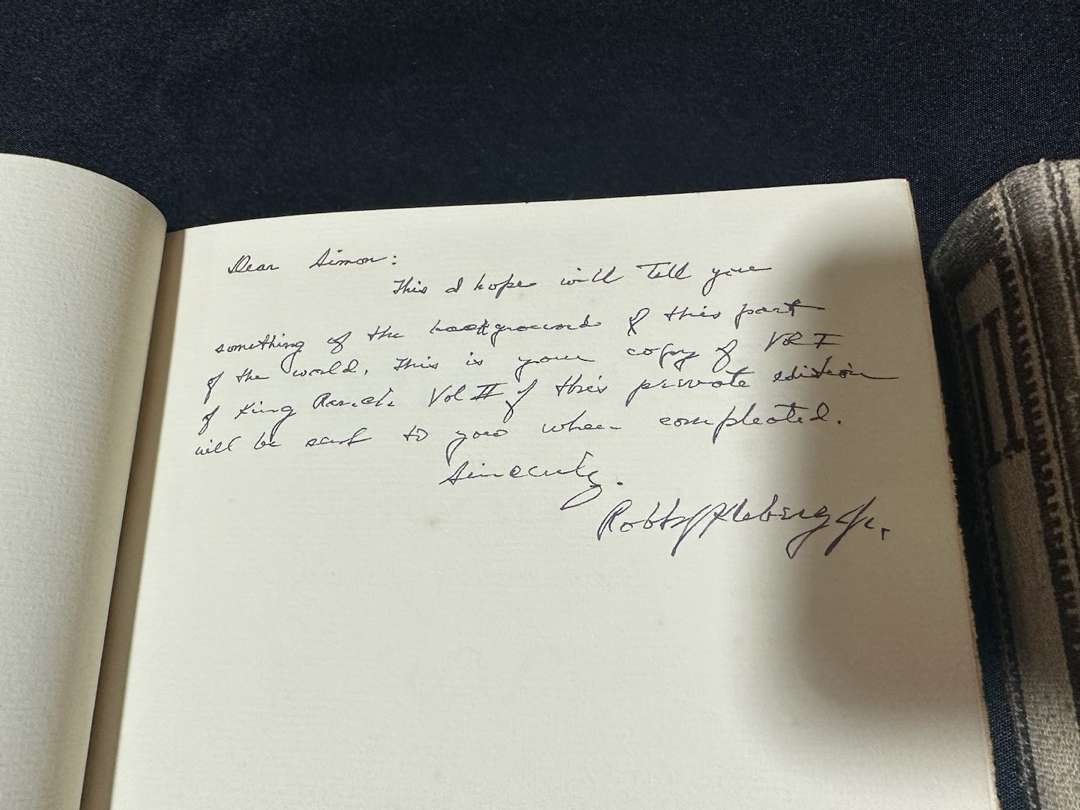 Dear Simon:
This I hope will Tell you
something of the background of this part
of the world. This is your copy of Vol I
of King Ranch Vol II of this private edition
will be sent to you when compleated.
Sincerely.
Robt J Kleberg Jr.